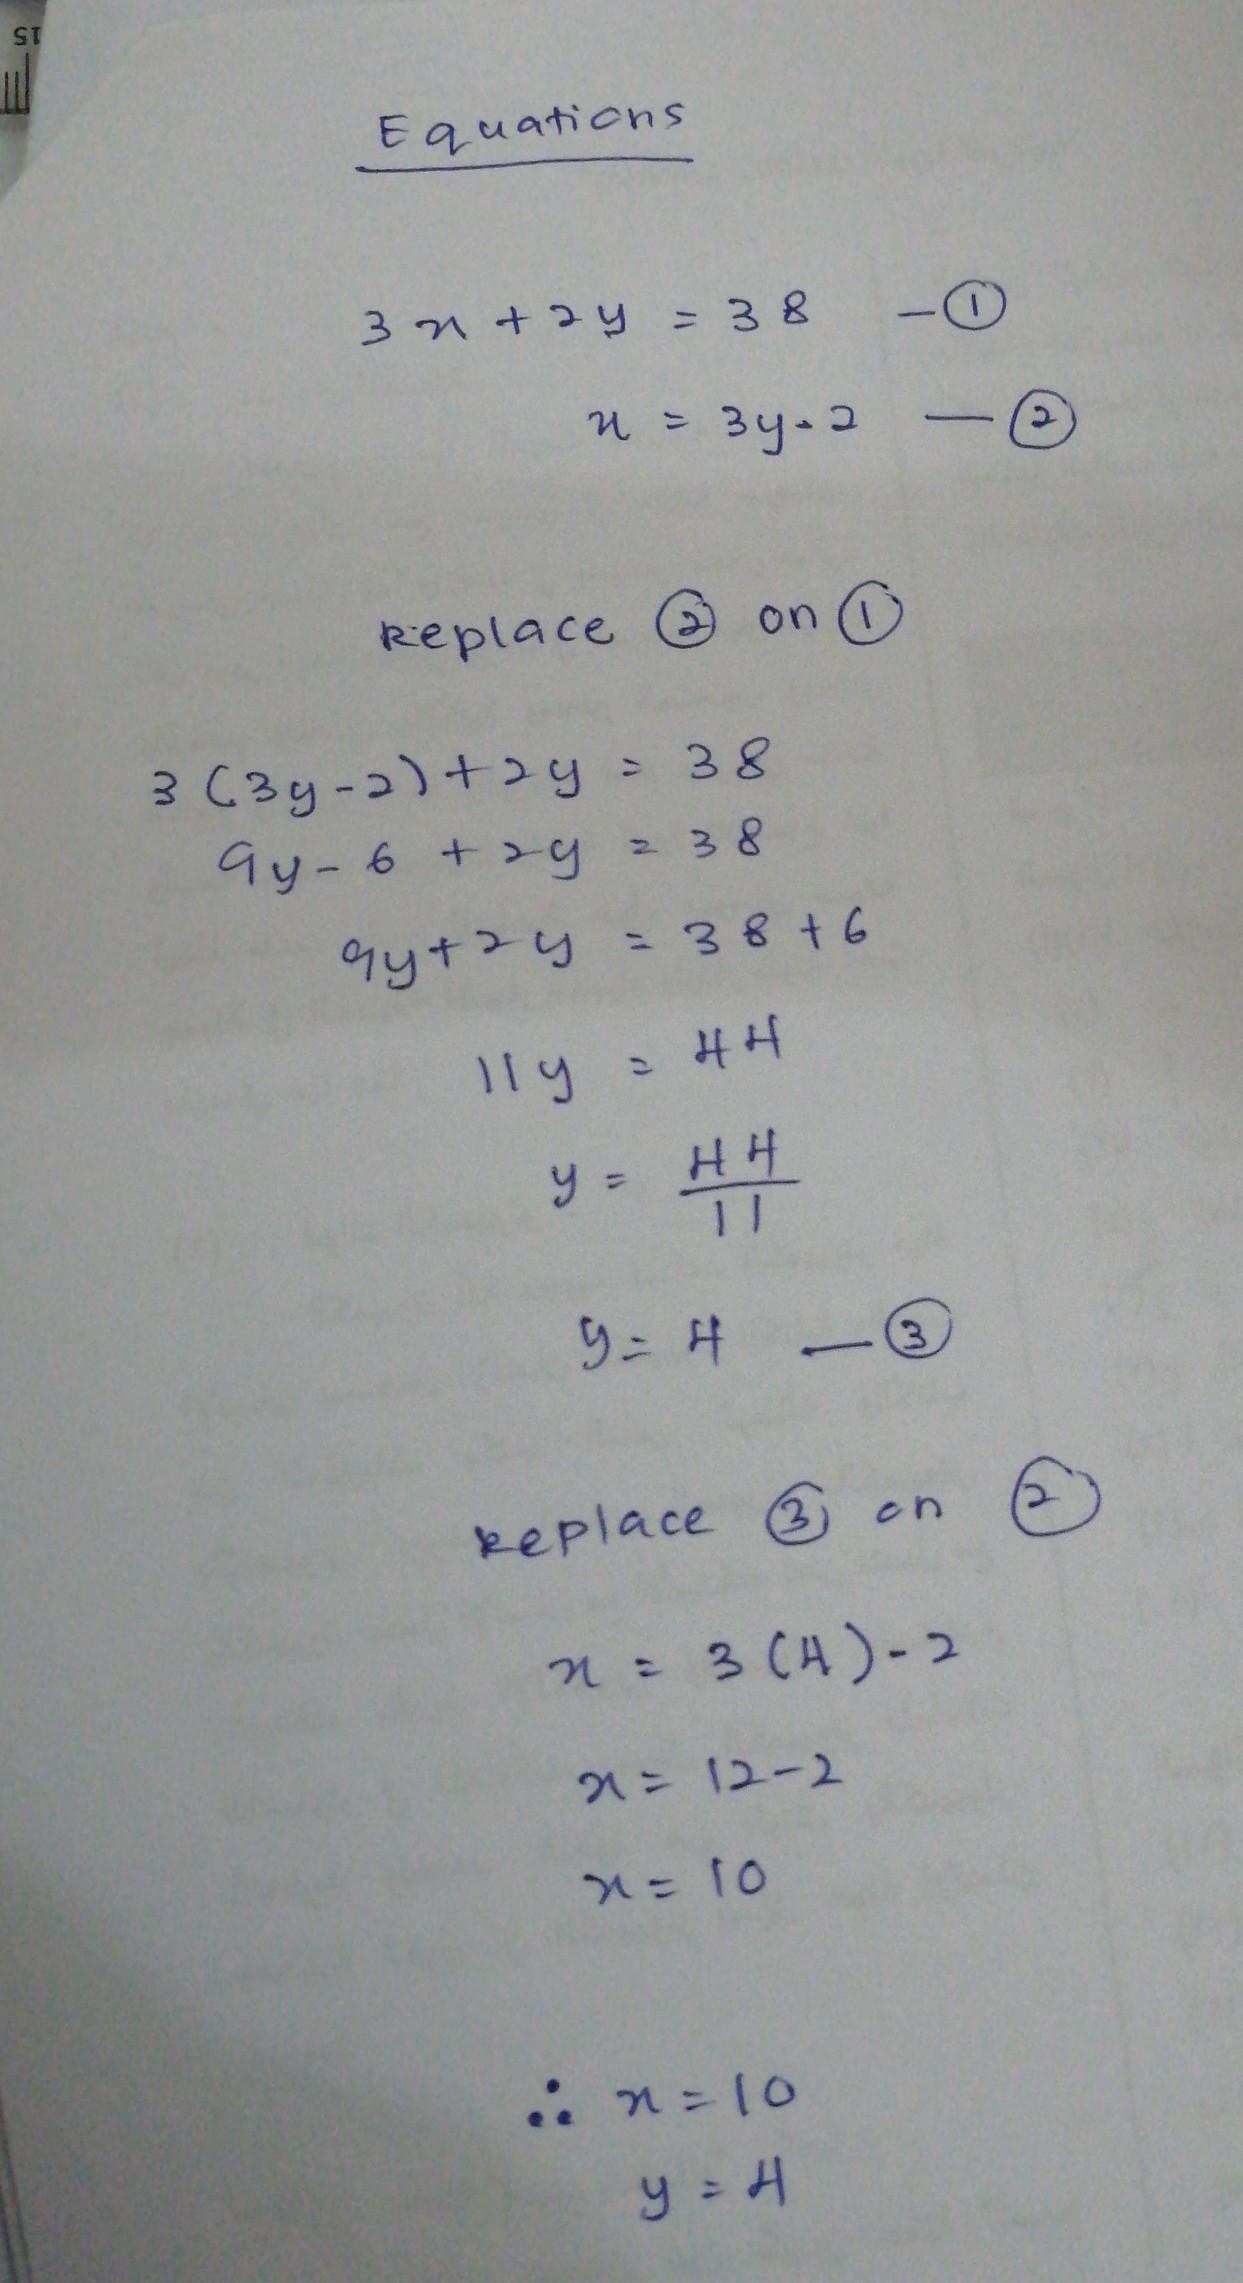 15
Equations
3x + 2y = 38 - ①
x = 3y - 2 — ②
Replace ② on ①
3 (3y - 2) + 2y = 38
9y - 6 + 2y = 38
9y + 2y = 38 + 6
11y = 44
y = 44/11
y = 4 — ③
Replace ③ on ②
x = 3 (4) - 2
x = 12 - 2
x = 10
∴ x = 10
y = 4